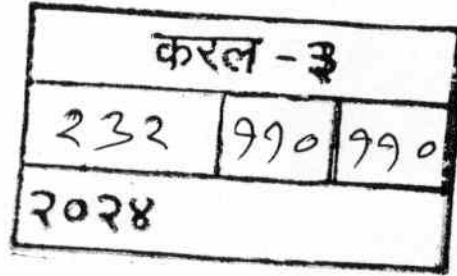 करल - ३
२३२ ११० ११०
२०२४